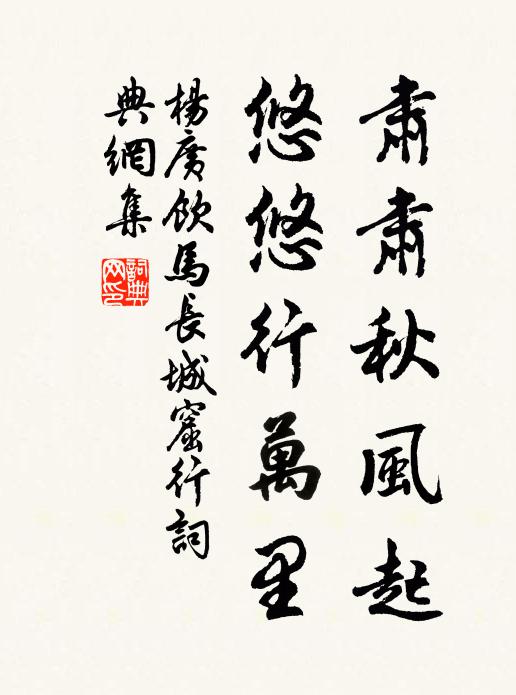 肅肅秋風起
悠悠行萬里
楊廣飲馬長城窟行詞
典網集
詞典
网印